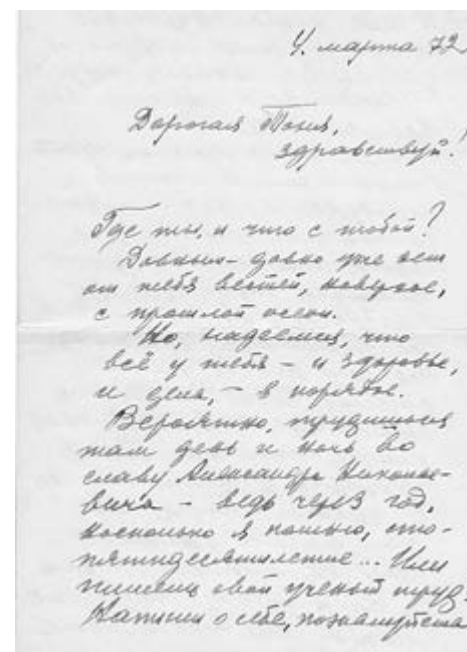 4. марта 72
Дорогая Тоня,
здравствуй!
Где ты, и что с тобой?
Давным-давно уже нет
от тебя вестей, наверное,
с прошлой осени.
Но, надеемся, что
всё у тебя - и здоровье,
и дела, - в порядке.
Вероятно, трудишься
там день и ночь во
славу Александра Николае-
вича - ведь через год,
насколько я помню, сто-
пятидесятилетие... Или
пишешь свой ученый труд.
Напиши о себе, пожалуйста